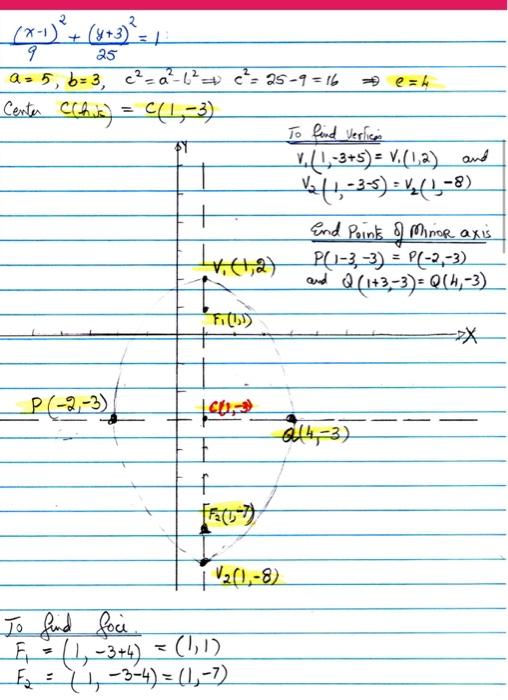 (x-1)²/9 + (y+3)²/25 = 1
a = 5, b = 3, c² = a² - b² ⇒ c² = 25 - 9 = 16 ⇒ e = 4
Center C(h,k) = C(1,-3)
To find vertices
V₁(1,-3+5) = V₁(1,2) and
V₂(1,-3-5) = V₂(1,-8)
End Points of Minor axis
P(1-3,-3) = P(-2,-3)
and Q(1+3,-3) = Q(4,-3)
Y
V₁(1,2)
F₁(1,1)
X
P(-2,-3)
C(1,-3)
Q(4,-3)
F₂(1,-7)
V₂(1,-8)
To find foci.
F₁ = (1, -3+4) = (1,1)
F₂ = (1, -3-4) = (1,-7)